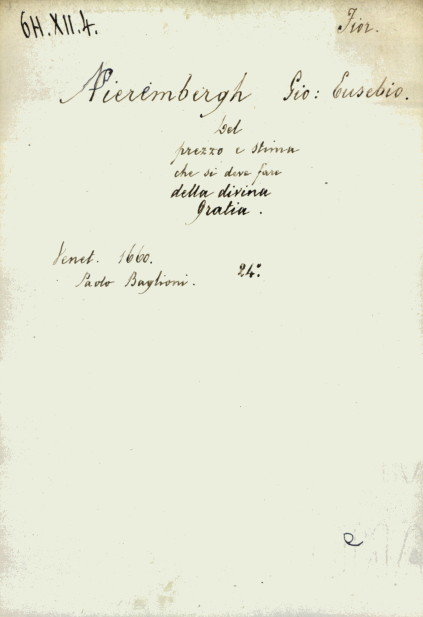 6H.XII.4.
Fior.
Nierembergh Gio: Eusebio.
Del
prezzo e stima
che si deve fare
della divina
Gratia.
Venet. 1660.
24°
Paolo Baglioni.
e